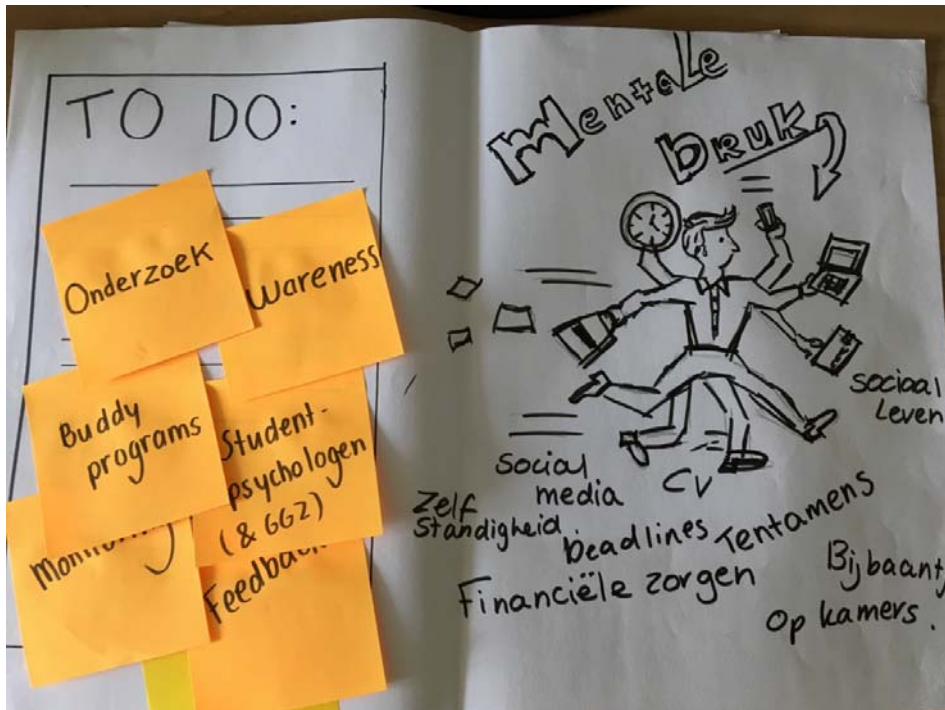 TO DO:
Onderzoek
wareness
Buddy
programs
Student-
psychologen
(& GGZ)
Feedback
Mentale
Druk
Sociaal
Leven
Social
media
CV
Zelf
Standigheid.
Deadlines
Tentamens
Financiële zorgen
Bijbaant
Op kamers.